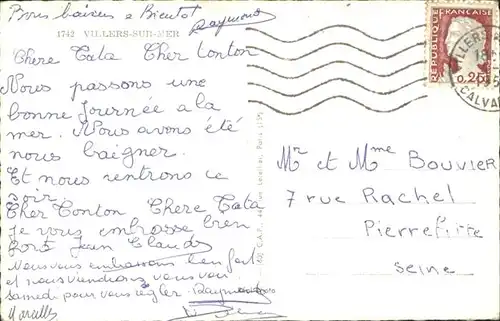 Bons baisers a Bientot
Raymond
1742 VILLERS-SUR-MER
Chere Tata Cher tonton
Nous passons une
bonne Journée a la
mer. Nous avons été
nous baigner.
Et nous rentrons ce
soir.
Cher Tonton Chere Tata
Je vous embrasse bien
fort Jean Claude
Nous vous embrassons bien fort
et nous viendrons vous voir
samedi pour vous régler. Raymond
Marcelle
REPUBLIQUE FRANÇAISE
0,25
VILLERS
CALVA
Mr et Mme BOUVIER
7 rue Rachel
Pierrefitte
Seine